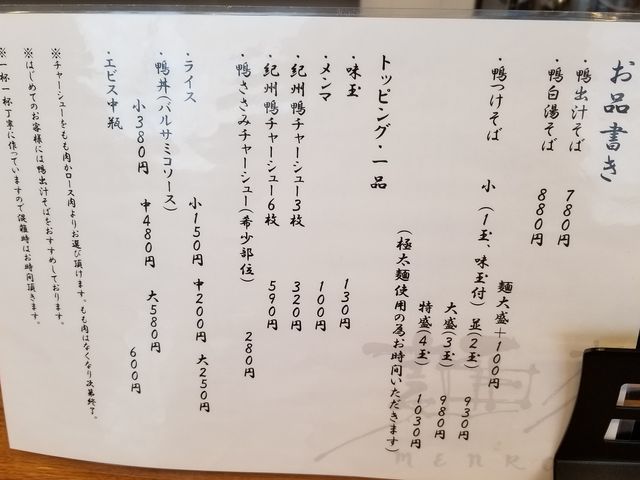 お品書き
・鴨出汁そば 780円
・鴨白湯そば 880円
麺大盛+100円
・鴨つけそば 小(1玉、味玉付) 並(2玉) 930円
大盛(3玉) 980円
特盛(4玉) 1030円
(極太麺使用の為お時間いただきます)
トッピング・一品
・味玉 130円
・メンマ 100円
・紀州鴨チャーシュー3枚 320円
・紀州鴨チャーシュー6枚 590円
・鴨ささみチャーシュー(希少部位) 280円
・ライス 小150円 中200円 大250円
・鴨丼(バルサミコソース)
小380円 中480円 大580円
・エビス中瓶 600円
※チャーシューをもも肉かロース肉よりお選び頂けます、もも肉はなくなり次第終了。
※はじめてのお客様には鴨出汁そばをおすすめしております。
※一杯一杯丁寧に作っていますので混雑時はお時間頂きます。